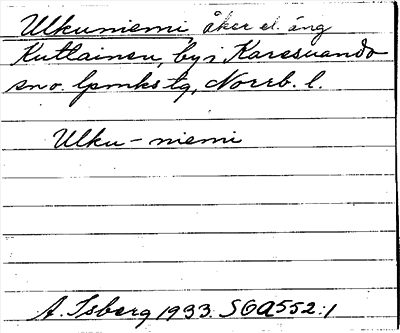 Ulkuniemi åker el. äng
Kuttainen, by i Karesuando
sn o. lpmks tg, Norrb. l.
Ulku-niemi
A. Isberg 1933. SOA 552:1